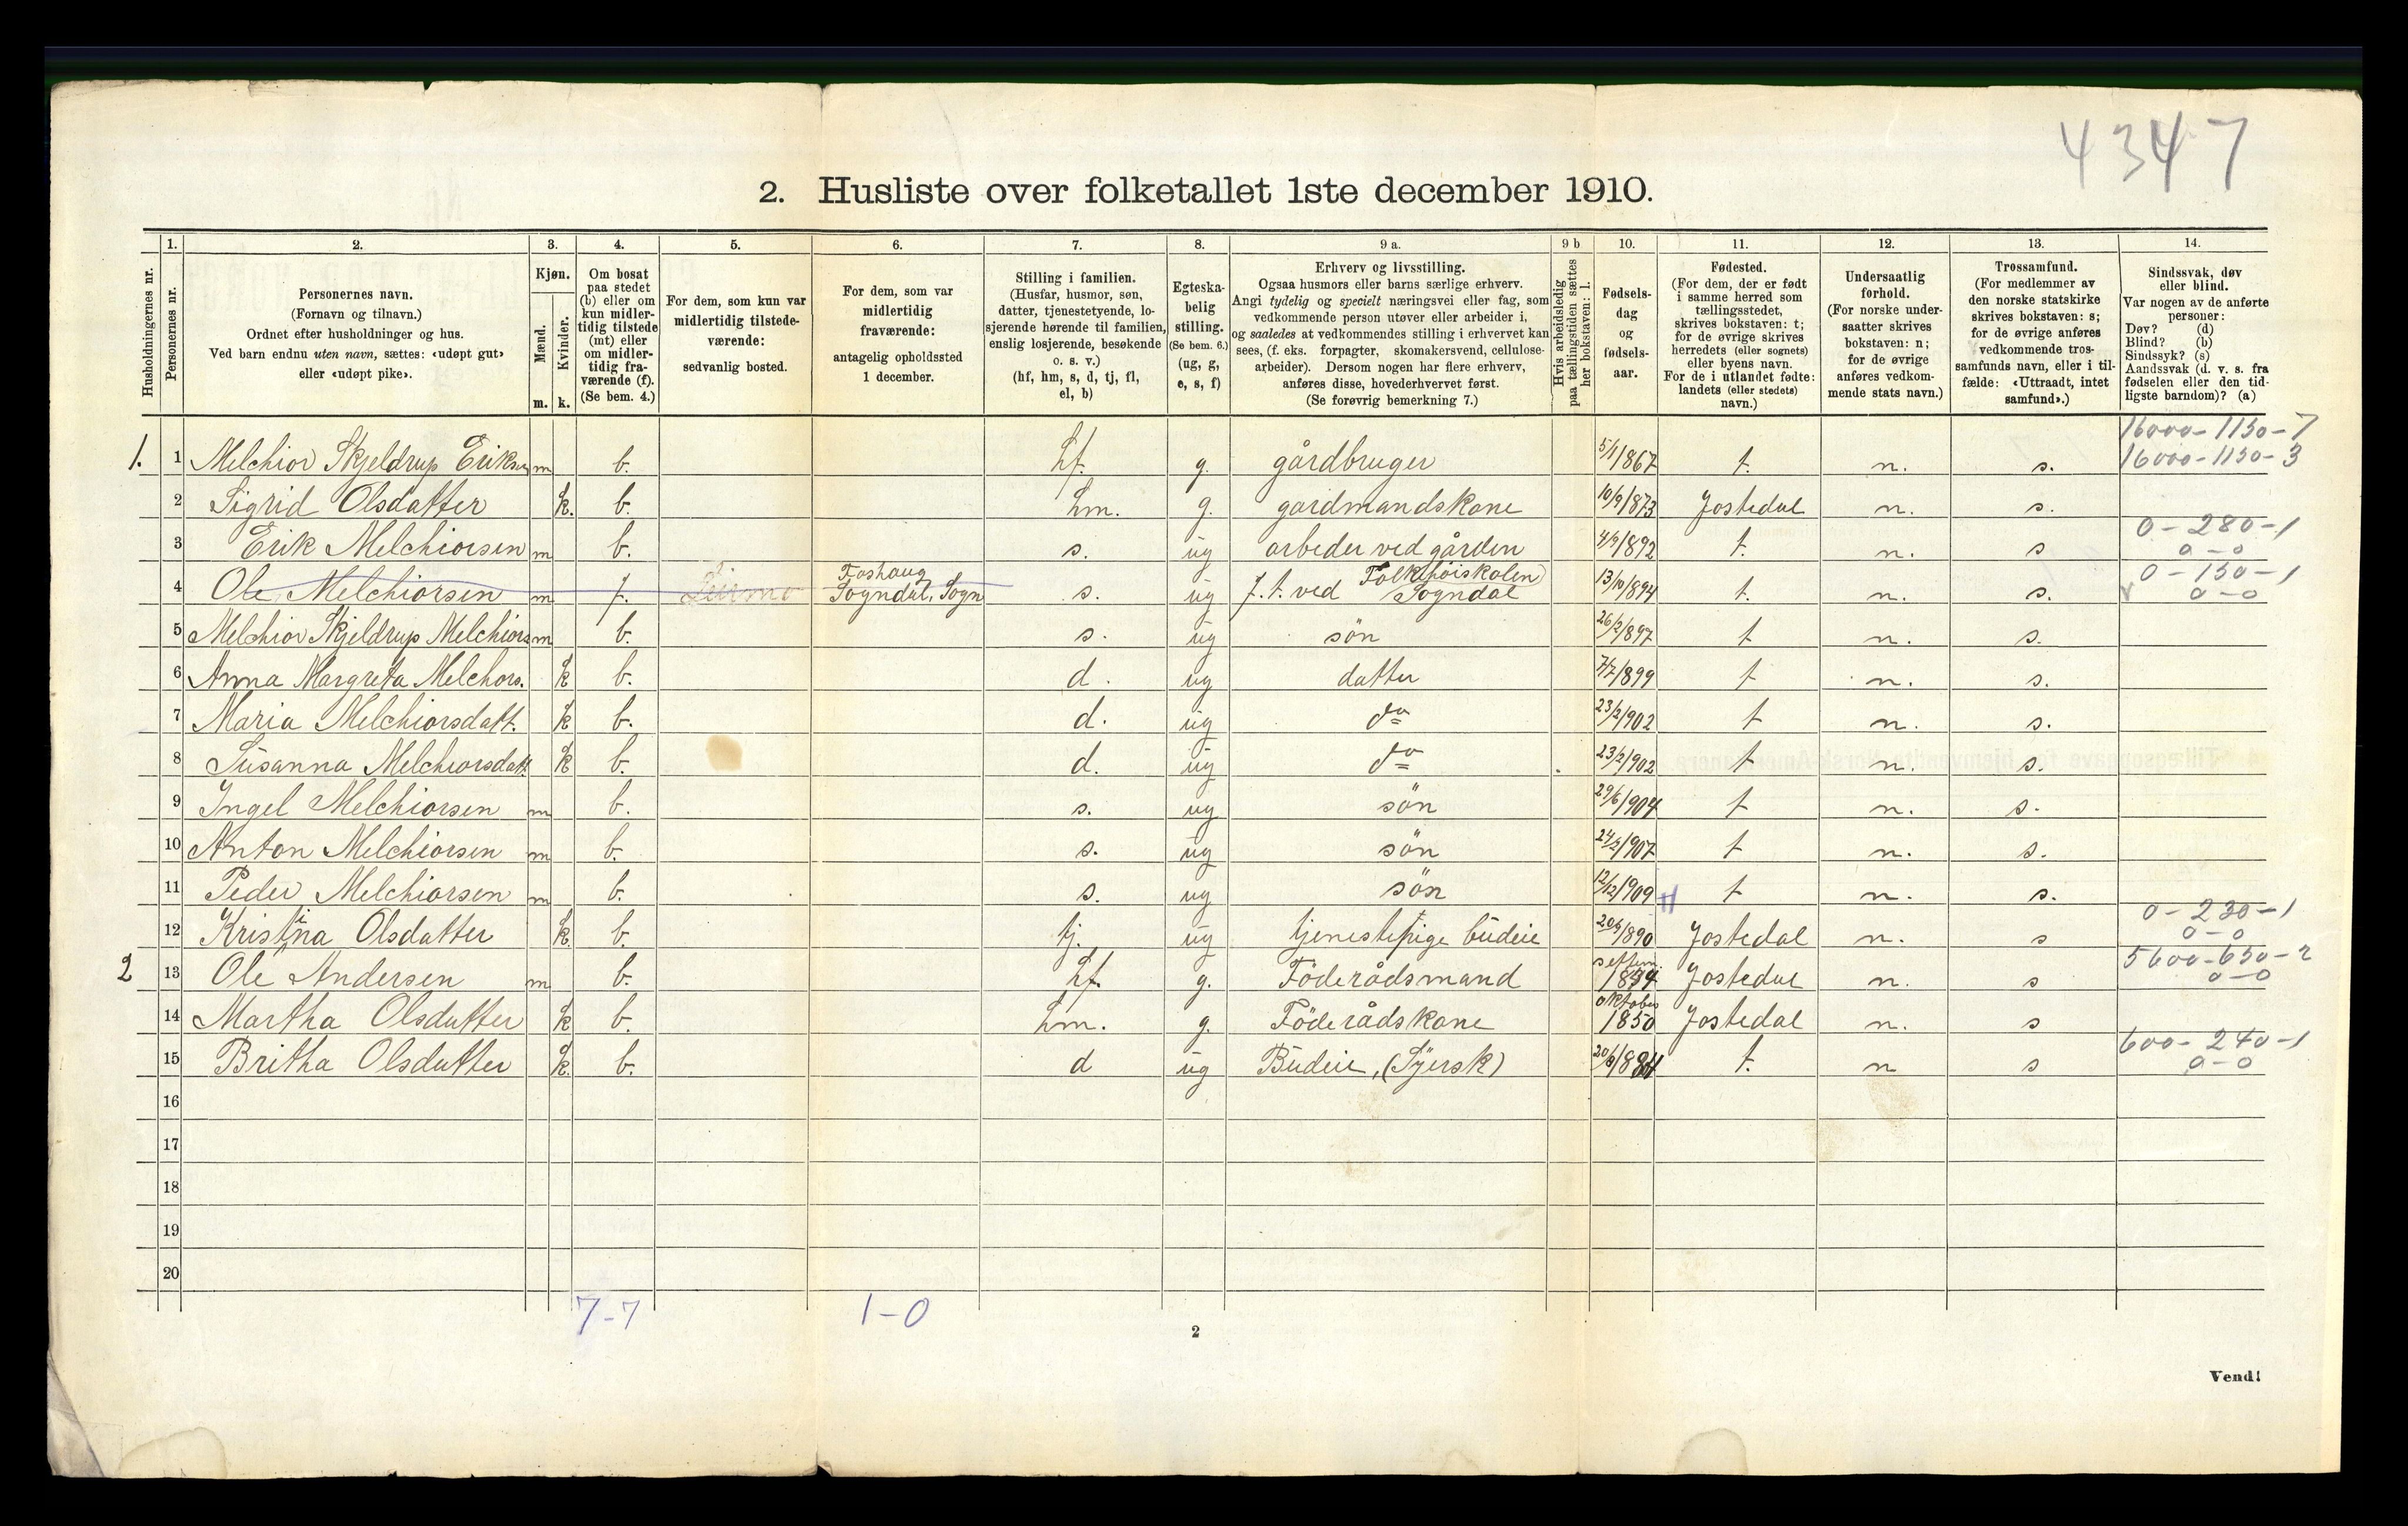 4347
2. Husliste over folketallet 1ste december 1910.
Husholdningernes nr.
1.
Personernes nr.
2.
Personernes navn.
(Fornavn og tilnavn.)
Ordnet efter husholdninger og hus.
Ved barn endnu uten navn, sættes: «udøpt gut»
eller «udøpt pike».
3.
Kjøn.
Mænd.
Kvinder.
m. k.
4.
Om bosat
paa stedet
(b) eller om
kun midler-
tidig tilstede
(mt) eller
om midler-
tidig fra-
værende (f).
(Se bem. 4.)
5.
For dem, som kun var
midlertidig tilstede-
værende:
sedvanlig bosted.
6.
For dem, som var
midlertidig
fraværende:
antagelig opholdssted
1 december.
7.
Stilling i familien.
(Husfar, husmor, søn,
datter, tjenestetyende, lo-
sjerende hørende til familien,
enslig losjerende, besøkende
o. s. v.)
(hf, hm, s, d, tj, fl,
el, b)
8.
Egteska-
belig
stilling.
(Se bem. 6.)
(ug, g,
e, s, f)
9 a.
Erhverv og livsstilling.
Ogsaa husmors eller barns særlige erhverv.
Angi tydelig og specielt næringsvei eller fag, som
vedkommende person utøver eller arbeider i,
og saaledes at vedkommendes stilling i erhvervet kan
sees, (f. eks. forpagter, skomakersvend, cellulose-
arbeider). Dersom nogen har flere erhverv,
anføres disse, hovederhvervet først.
(Se forøvrig bemerkning 7.)
9 b
Hvis arbeidsledig
paa tællingstiden sættes
her bokstaven: l.
10.
Fødsels-
dag
og
fødsels-
aar.
11.
Fødested.
(For dem, der er født
i samme herred som
tællingsstedet,
skrives bokstaven: t;
for de øvrige skrives
herredets (eller sognets)
eller byens navn.
For de i utlandet fødte:
landets (eller stedets)
navn.)
12.
Undersaatlig
forhold.
(For norske under-
saatter skrives
bokstaven: n;
for de øvrige
anføres vedkom-
mende stats navn.)
13.
Trossamfund.
(For medlemmer av
den norske statskirke
skrives bokstaven: s;
for de øvrige anføres
vedkommende tros-
samfunds navn, eller i til-
fælde: «Uttraadt, intet
samfund».)
14.
Sindssvak, døv
eller blind.
Var nogen av de anførte
personer:
Døv? (d)
Blind? (b)
Sindssyk? (s)
Aandssvak (d. v. s. fra
fødselen eller den tid-
ligste barndom)? (a)
16000-1150-7
1. 1 Melchior Skjeldrup Eriksen m b. hf. g. gårdbruger 5/1 1867 t. n. s. 16000-1150-3
2 Sigrid Olsdatter k. b. hm. g. gardmandskone 10/9 1873 Jostedal n. s.
3 Erik Melchiorsen m b. s. ug arbeder ved gården 4/9 1892 t. n. s 0-280-1
0-0
4 Ole Melchiorsen m f. Foshaug Sogndal, Sogn s. ug f.t. ved Folkehöiskolen Sogndal 13/10 1894 t. n. s. 0-150-1
0-0
5 Melchior Skjeldrup Melchiors m b. s. ug sön 26/2 1897 t n. s.
6 Anna Margreta Melchors. k b. d. ug datter 7/7 1899 t n. s.
7 Maria Melchiorsdatt. k b. d. ug do 23/2 1902 t n. s.
8 Susanna Melchiorsdatt k b. d. ug do 23/2 1902 t n. s.
9 Ingel Melchiorsen m b. s. ug sön 29/6 1904 t n. s.
10 Anton Melchiorsen m b. s. ug sön 24/5 1907 t n. s.
11 Peder Melchiorsen m b. s. ug sön 12/12 1909 t n. s.
12 Kristina Olsdatter k b. tj. ug tjenestepige budeie 1890 Jostedal n. s 0-230-1
0-0
2 13 Ole Andersen m b. hf. g. Föderådsmand septem. 1854 Jostedal n. s 5600-650-2
0-0
14 Martha Olsdatter k b. hm. g. Föderådskone oktober 1850 Jostedal n. s
15 Britha Olsdatter k. b. d ug Budeie, (Syersk) t. n s 600-240-1
0-0
16
17
18
19
20
7-7 1-0
2
Vend!